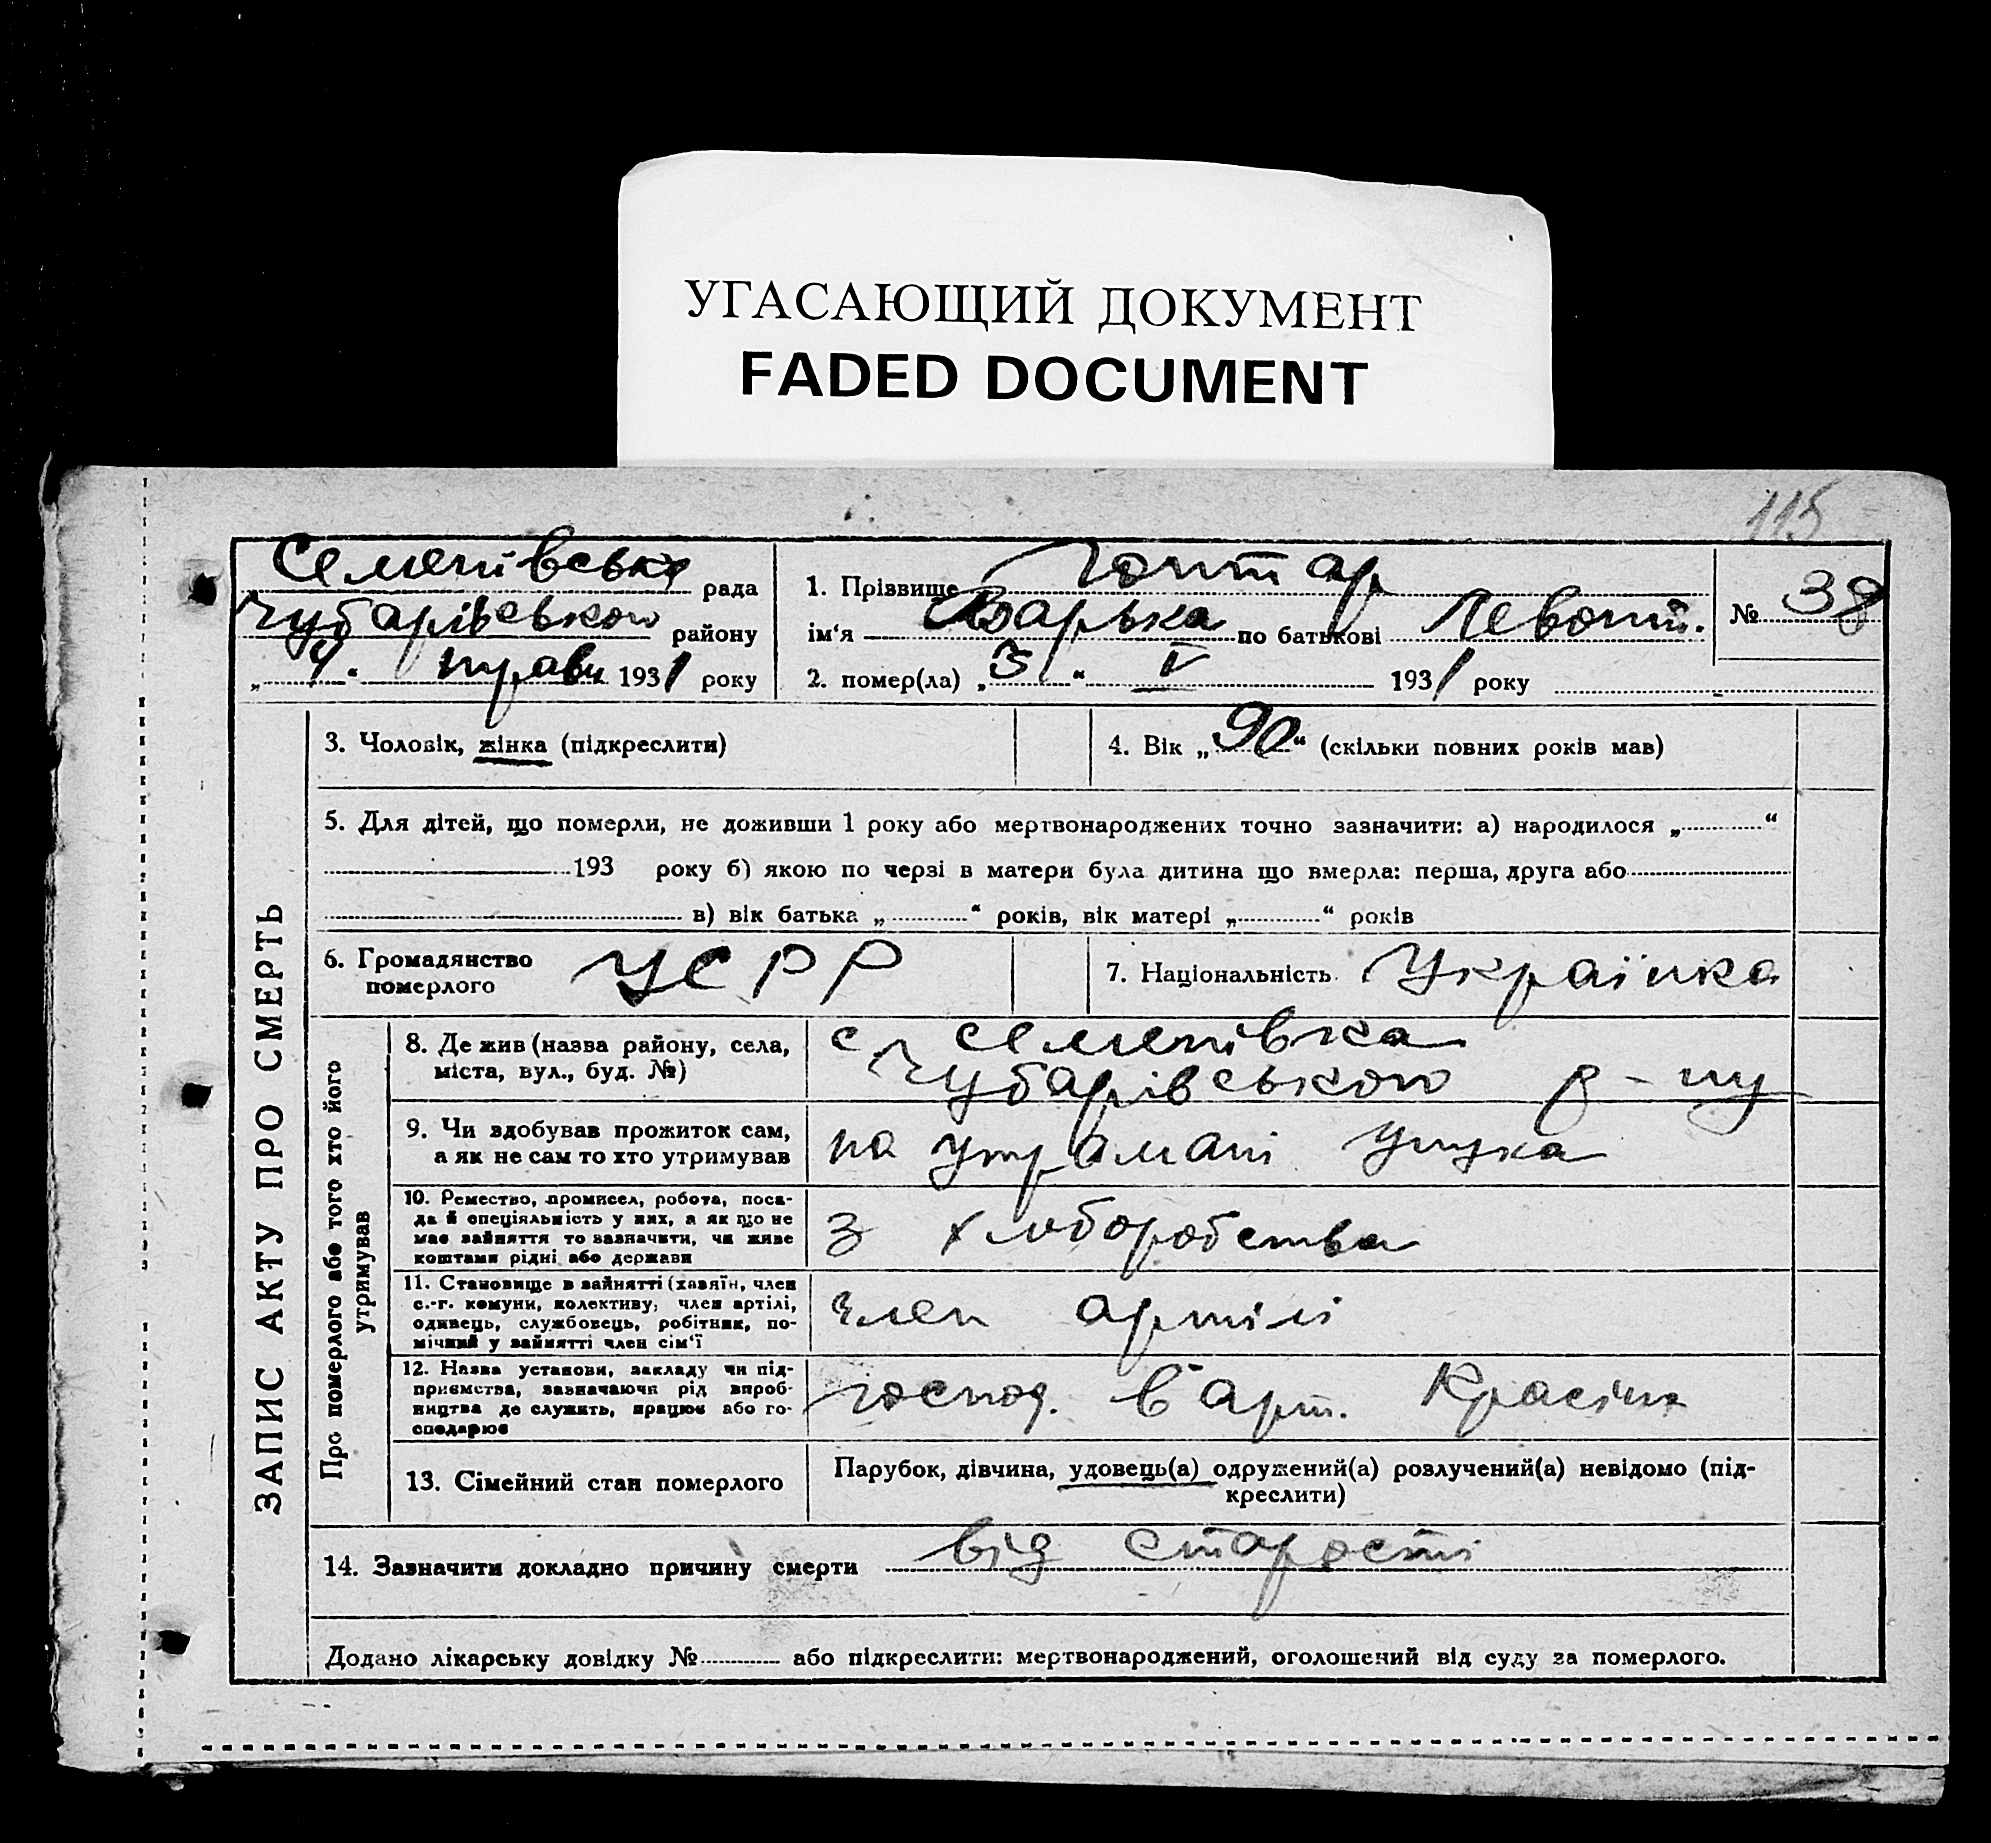 УГАСАЮЩИЙ ДОКУМЕНТ
FADED DOCUMENT
115
Семенівська рада
Чубарівського району
„ 4. " трав 1931 року
1. Прізвище Гонтар
ім'я Варька по батькові Левонт.
2. помер(ла) „ 3 " V 1931 року
№ 38
ЗАПИС АКТУ ПРО СМЕРТЬ
3. Чоловік, жінка (підкреслити)
4. Вік „ 90 " (скільки повних років мав)
5. Для дітей, що померли, не доживши 1 року або мертвонароджених точно зазначити: а) народилося „ "
193 року б) якою по черзі в матери була дитина що вмерла: перша, друга або
в) вік батька „ " років, вік матері „ " років
6. Громадянство
померлого УСРР
7. Національність Українка
Про померлого або того хто його
утримував
8. Де жив (назва району, села,
міста, вул., буд. №)
с. Семенівка
Чубарівського р-ну
9. Чи здобував прожиток сам,
а як не сам то хто утримував
на утримані унука
10. Ремество, промисел, робота, поса-
да й спеціяльність у них, а як що не
має зайняття то зазначити, чи живе
коштами рідні або держави
З хлоборобства
11. Становище в зайнятті (хазяїн, член
с.-г. комуни, колективу, член артілі,
одинець, службовець, робітник, по-
мічний у зайнятті член сім'ї
член артілі
12. Назва установи, закладу чи під-
приємства, зазначаючи рід вироб-
ництва де служить, працює або го-
сподарює
господ. в арт. Красіна
13. Сімейний стан померлого
Парубок, дівчина, удовець(а) одружений(а) розлучений(а) невідомо (під-
креслити)
14. Зазначити докладно причину смерти від старости
Додано лікарську довідку № або підкреслити: мертвонароджений, оголошений від суду за померлого.